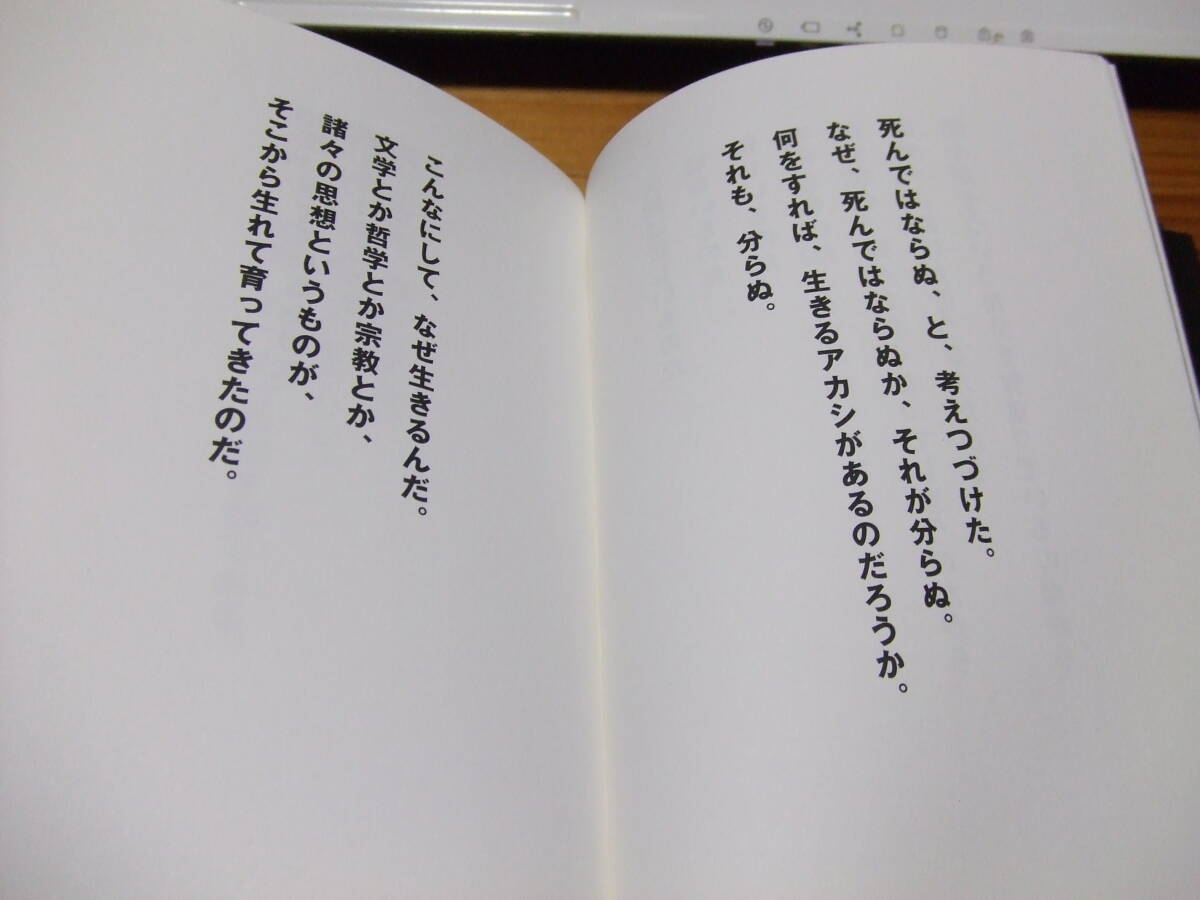 死んではならぬ、と、考えつづけた。
なぜ、死んではならぬか、それが分らぬ。
何をすれば、生きるアカシがあるのだろうか。
それも、分らぬ。
こんなにして、なぜ生きるんだ。
文学とか哲学とか宗教とか、
諸々の思想というものが、
そこから生れて育ってきたのだ。